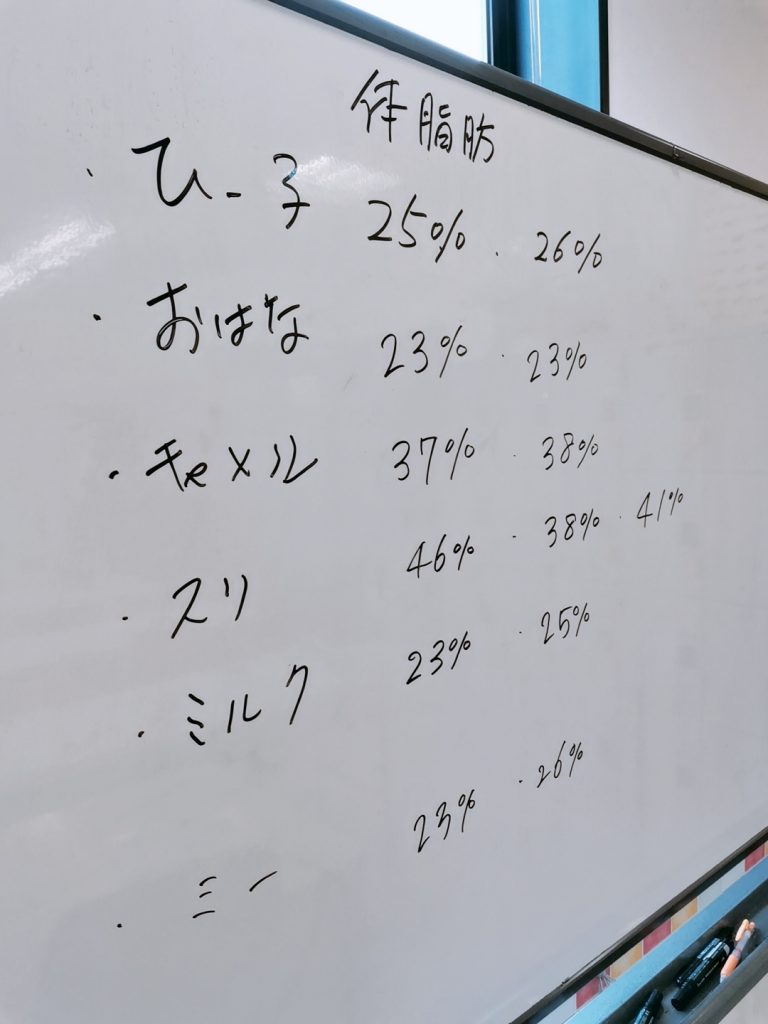 体脂肪
・ひー子 25%・26%
・おはな 23%・23%
・キャメル 37%・38%
・スリ 46%・38%・41%
・ミルク 23%・25%
・ミー 23%・26%